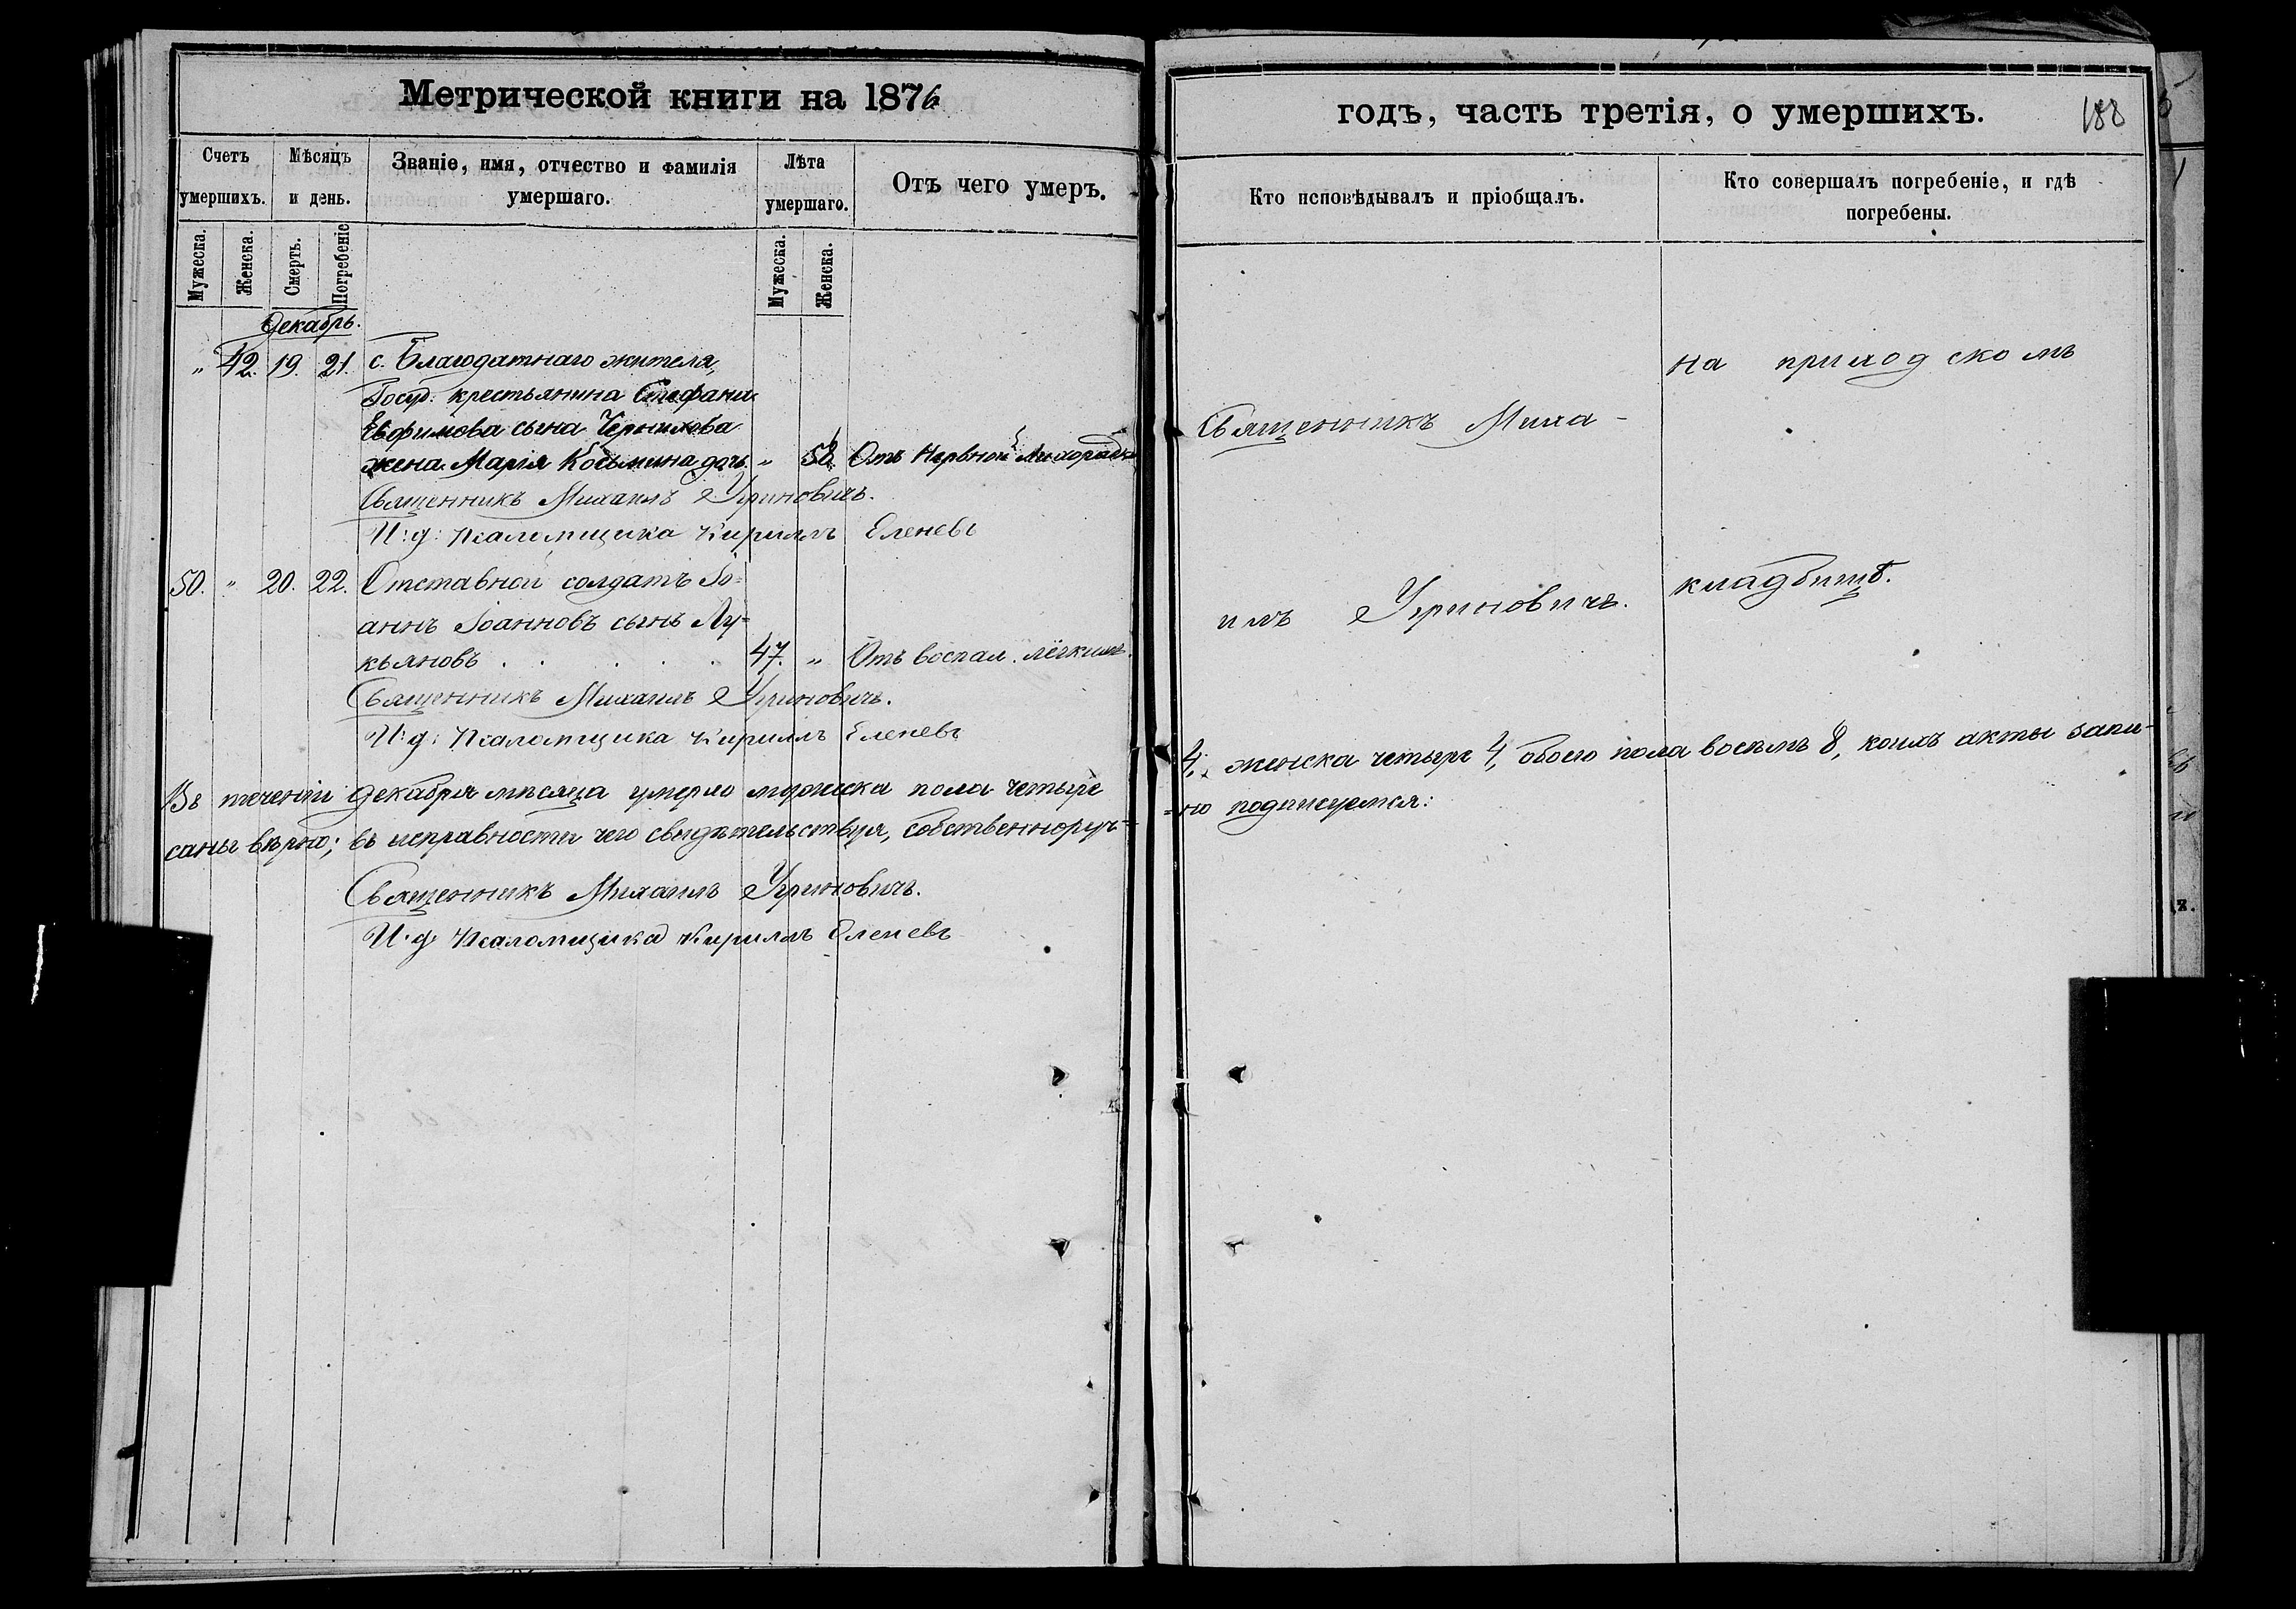 Метрической книги на 1876
Счетъ умершихъ.
Мѣсяцъ и день.
Званіе, имя, отчество и фамилія умершаго.
Лѣта умершаго.
Отъ чего умеръ.
Мужеска.
Женска.
Смерть.
Погребеніе
Мужеска.
Женска.
Декабрь.
" 42. 19. 21. с. Благодатнаго жителя,
Госуд. крестьянина Стефана
Евфимова сына Чернилова
жена Марія Косьмина дочь. " 58. Отъ Нервной Лихорадк
Священникъ Михаилъ Угриновичъ.
И: д: Псаломщика Кириллъ Еленевъ
50. " 20. 22. Отставной солдатъ Іо-
аннъ Іоанновъ сынъ Лу-
кьяновъ . . . . . 47. " Отъ воспал. лёгкихъ.
Священникъ Михаилъ Угриновичъ.
И: д: Псаломщика Кириллъ Еленевъ
Въ теченіи Декабря мѣсяца умерло мужеска пола четыре
саны вѣрно; въ исправности чего свидѣтельствуя, собственноруч-
Священникъ Михаилъ Угриновичъ.
И. д. Псаломщика Кириллъ Еленевъ
годъ, часть третія, о умершихъ.
188
Кто исповѣдывалъ и пріобщалъ.
Кто совершалъ погребеніе, и гдѣ
погребены.
на приходскомъ
Священникъ Миха-
илъ Угриновичъ.
кладбищѣ.
4, женска четыре 4, обоего пола восемь 8, коихъ акты запи-
-но подписуемся: